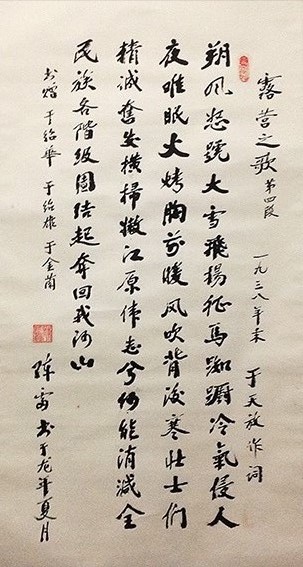 露营之歌 第四段 一九三八年末 于天放作词
朔风怒號大雪飛揚征馬踟蹰冷氣侵人
夜难眠火烤胸前暖风吹背後寒壮士们
精诚奮发横掃嫩江原伟志兮何能消滅全
民族各階级團结起奪回我河山
书赠 于绍華 于绍雄 于金蘭
陈雷书于龙年夏月